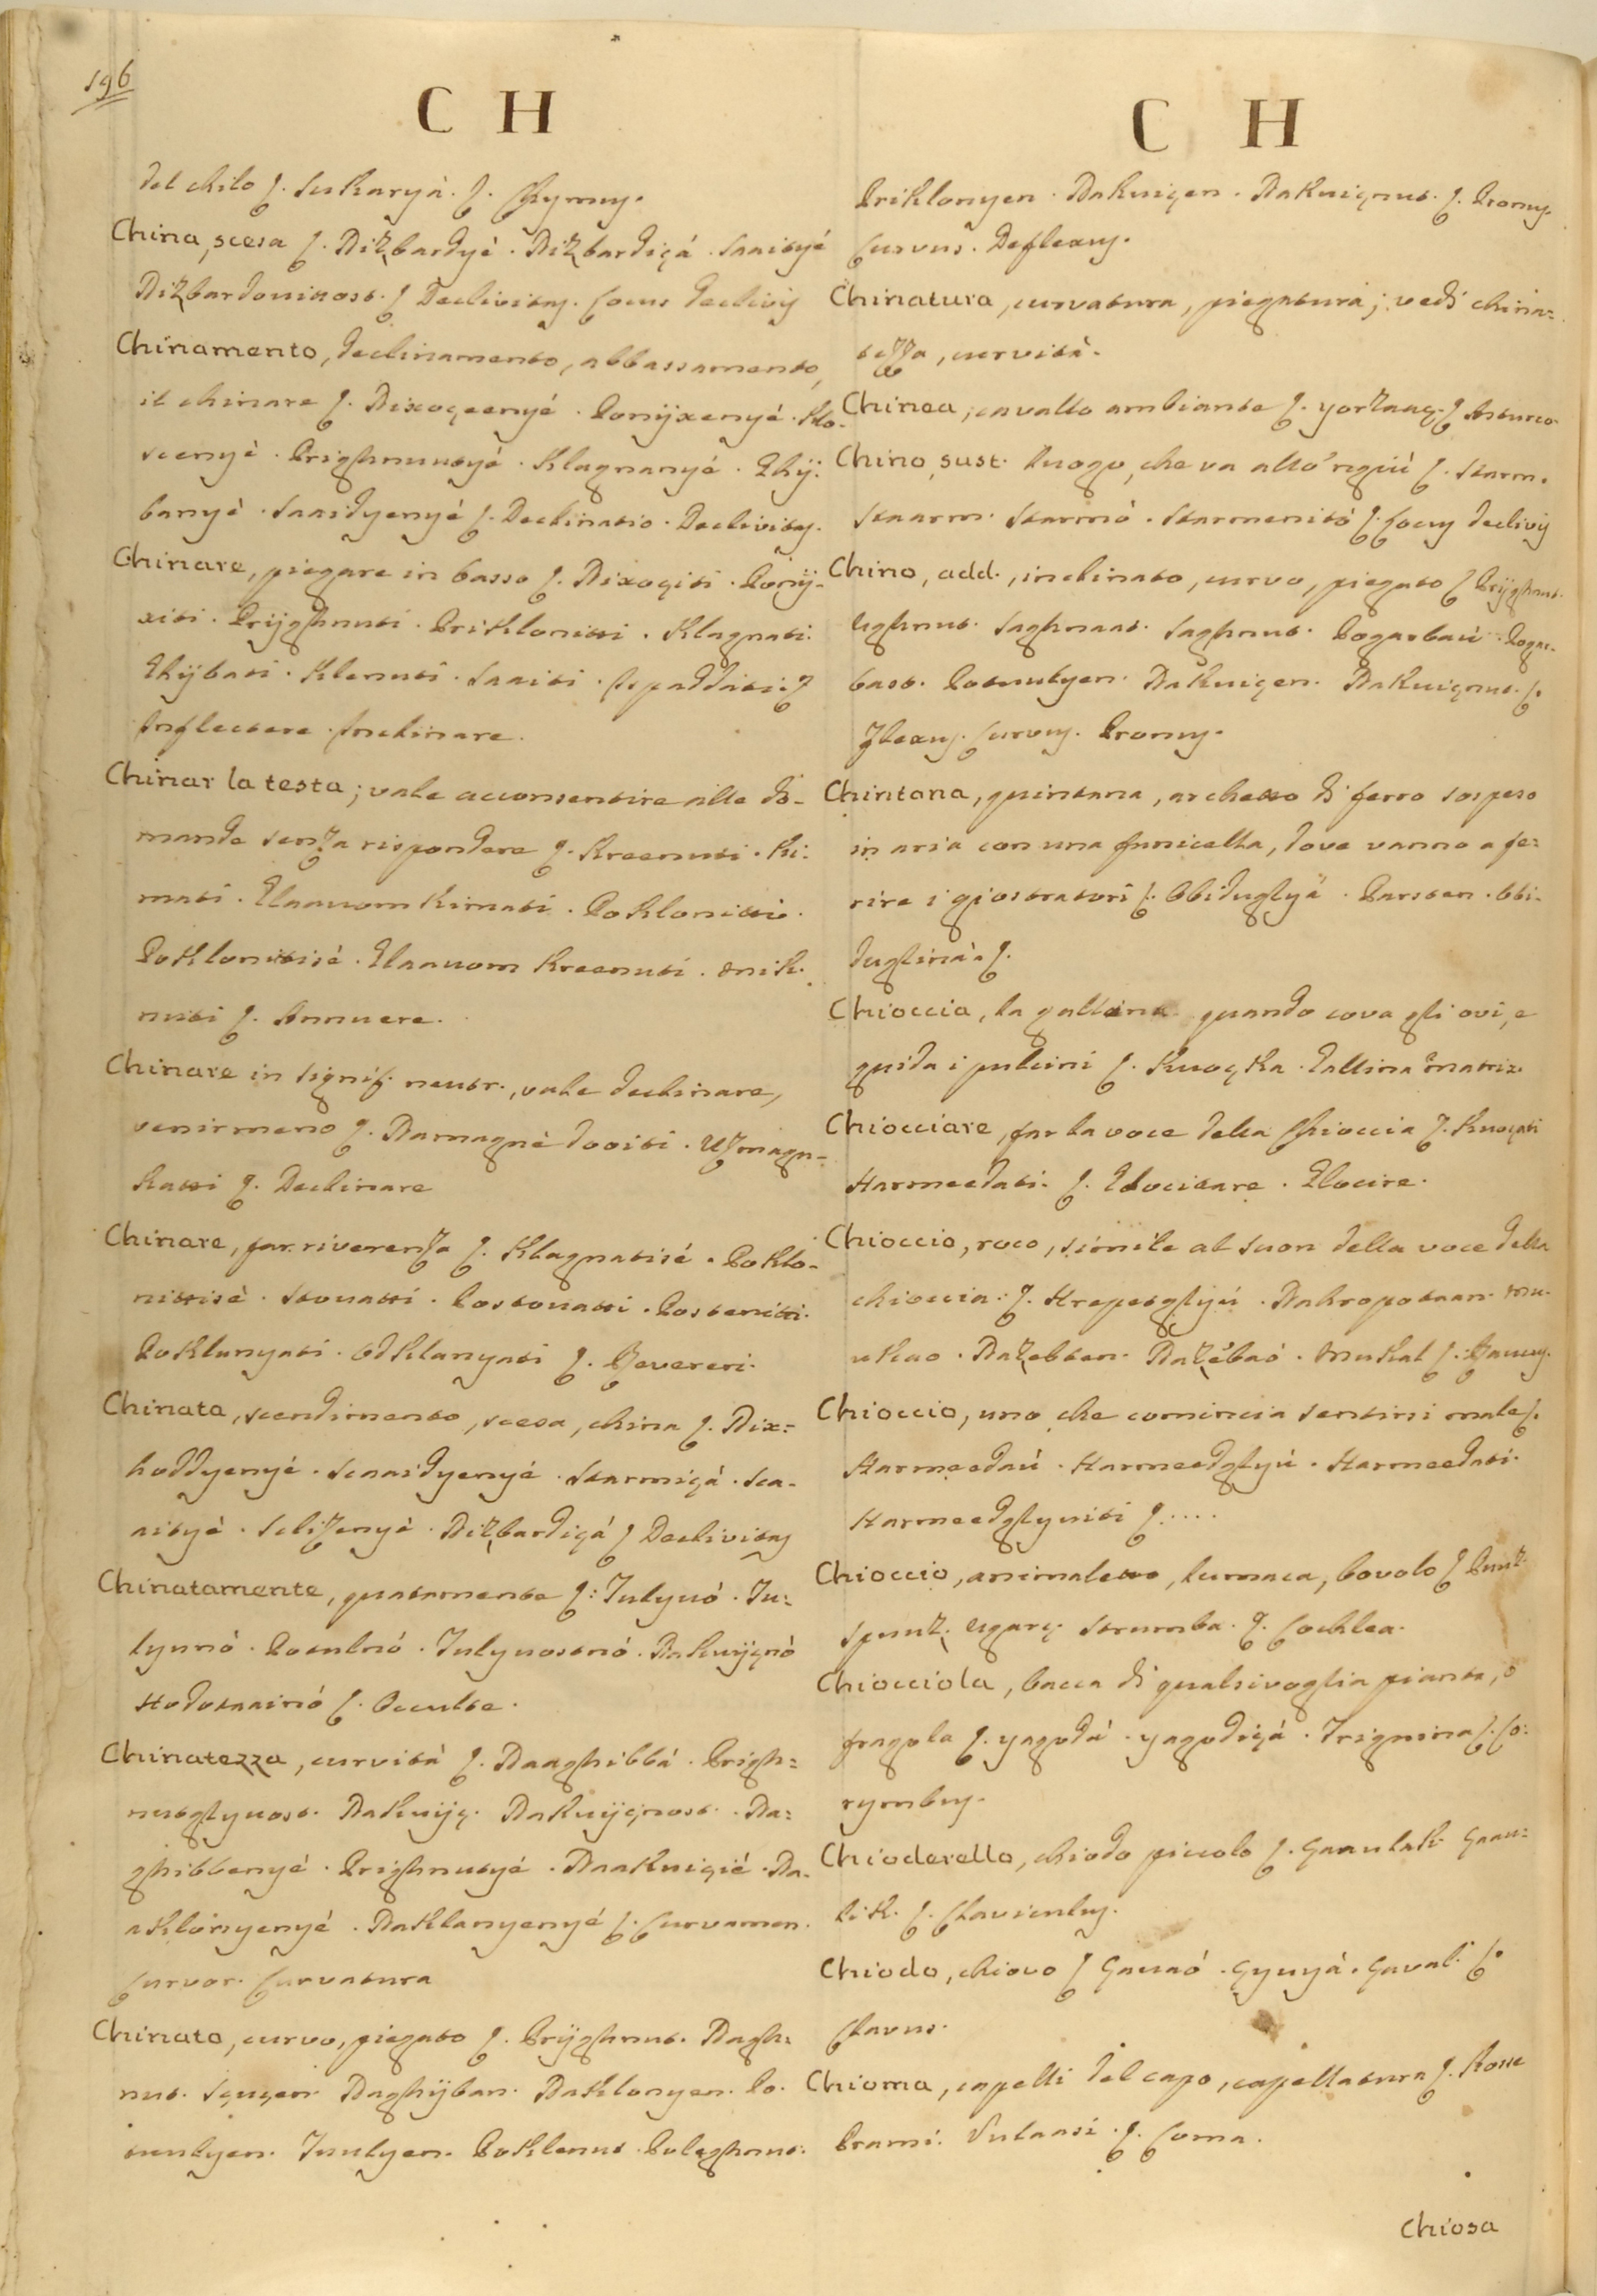 196
C H
del chilo ſ. Sukaryà. ſ. Chymuſ.
China, scesa ſ. Niz̨bardyè. Niz̨bardiçá. Saaityé
Niz̨bardovitost. ſ Declivitaſ. Locus decliviſ
Chinamento, declinamento, abbassamento,
il chinare ſ. Nixoçeenyé. Ponÿxenyé. Klo-
scenyè. Prighnutyé. Klagnanyé. Ghÿ-
banyè. Saasidyenyé ſ. Declinatio. Declivitaſ.
Chinare, piegare in basso ſ. Nixoçiti. Ponÿ-
xiti. Prÿghnuti. Prikloniti. Klagnati.
Ghÿbati. Klenuti. Saaiti. Uspadditi. ſ
Inflectere. Inclinare.
Chinar la testa; vale acconsentire alle di-
mande senza rispondere ſ. Kreenuti. Ki-
mati. Glaauom kimati. Poklonitti.
Poklonitisè. Glaauom kreenuti. Mik-
nuti ſ. Annuere.
Chinare in signif. neutr., vale declinare,
venirmeno ſ. Namagnè dooiti. Uzmagn-
katti ſ. Declinare
Chinare, far riverenza ſ. Klagnatisé. Poklo-
nittisè. Stouatti. Postouatti. Postenitti.
Poklanyati. Odklanyati ſ. Revereri.
Chinata, scendimento, scesa, china ſ. Nix-
hoddyenyé. Scaasidyenyé. Starmiçà. Sca-
aityé. Selizenyè. Niz̨bardiçá ſ Declivitaſ
Chinatamente, quatamente ſ. Tulyuó. Tu-
lyunò. Potulnó. Tulyuostnó. Nakuÿçnò
Hodotaainó ſ. Occulte.
Chinatezza, curvità ſ. Naaghibbá. Prigh-
nutglyuost. Nakuÿç. Nakuÿçnost. Na-
ghibbenyé. Prighnutyé. Naakuiçié. Na-
aklónyenyé. Naklanyenyé ſ. Curvamen.
Curvor. Curvatura
Chinato, curvo, piegato ſ. Prÿghnut. Nagh-
nut. Sçuçen. Naghÿban. Naklonyen. Po-
tuulyen. Tuulyen. Poklenut. Poleghnut.
C H
Priklonyen. Nakuiçen. Nakuiçnut. ſ. Pronuſ.
Curvus. Deflexuſ.
Chinatura, curvatura, piegatura; vedi china-
tezza, curvità.
Chinea, cavallo ambiante ſ. yorzaaç. ſ Asturco
Chino, sust. luogo, che va allo'ngiù ſ. Starm.
Staarm. Starmó. Starmenitó ſ. Locuſ decliviſ
Chino, add., inclinato, curvo, piegato ſ Prÿghnut.
Ughnut. Saghnaat. Saghnut. Pogarbaù. Pogar-
bast. Potuulyen. Nakuiçen. Nakuiçnut. ſ.
Flexuſ. Curvuſ. Pronuſ.
Chintana, quintana, archetto di ferro sospeso
in aria con una funicella, dove vanno a fe-
rire i giostratori ſ. Obiduglyá. Parsten. Obi-
duglina. ſ.
Chioccia, la gallina quando cova gli ovi, e
guida i pulcini ſ. Kuoçka. Gallina matrix.
Chiocciare, far la voce della Chioccia ſ. Kuoçati
Harmeedati. ſ. Glocitare. Glocire.
Chioccio, roco, simile al suon della voce della
chioccia. ſ. Hrepetglyú. Nahropotaan. Mu-
ukao. Naz̨ebten. Naz̨èbaó. Mukal ſ. Raucuſ.
Chioccio, uno che comincia sentirsi male ſ.
Harmeedaú. Harmeedglyú. Harmeedati.
Harmeedglyuiti ſ.....
Chioccio, animaletto, lumaca, bovolo ſ Puuz̨.
Spuuz̨. Ugarç. Strumba. ſ. Cochlea.
Chiocciola, bacca di qualsivoglia pianta, o
fragola ſ. yagodá. yagodiçá. Trignina ſ. Co-
rymbuſ.
Chioderello, chiodo piccolo ſ. Çaaulak. Çaau-
lik. ſ. Claviculuſ.
Chiodo, chiovo ſ Çauaó. Çyuyà. Çaval. ſ.
Clavus.
Chioma, capelli del capo, capellatura ſ. Kosse
Prami. Vulaasi. ſ. Coma.
Chiosa